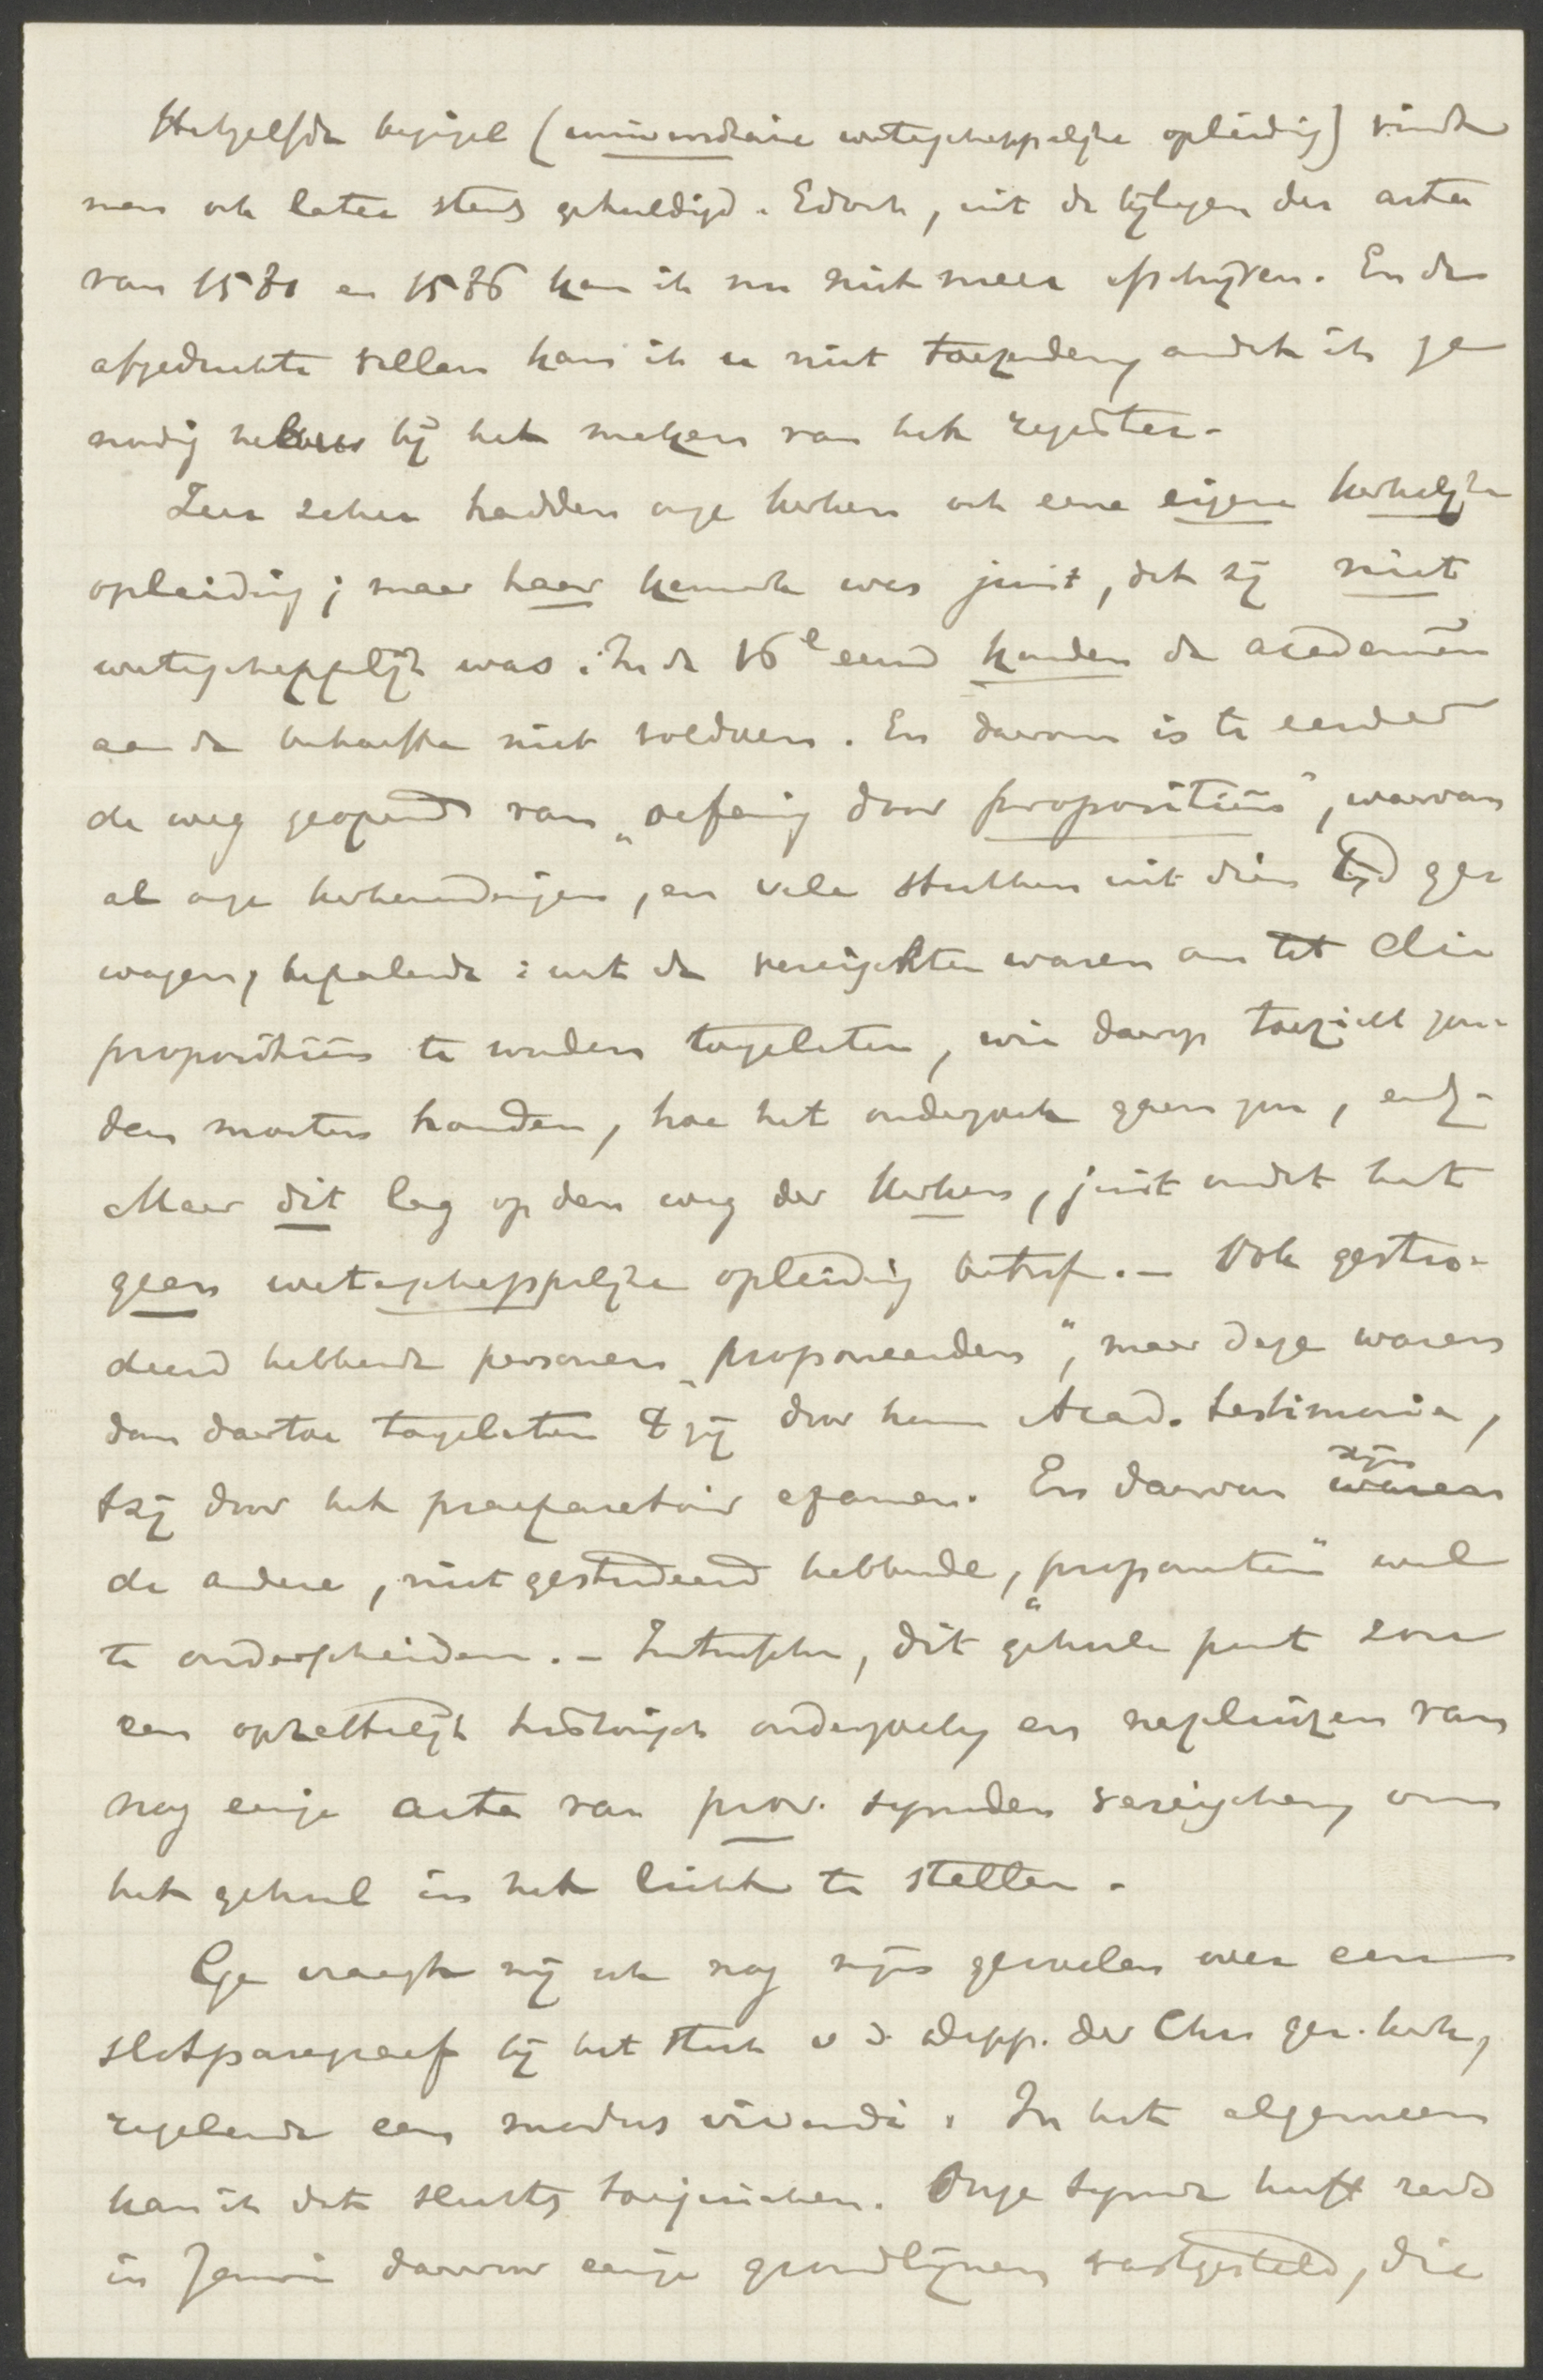 Hetzelfde beginsel (universitaire wetenschappelijke opleiding) vindt
men ook later steeds gehuldigd. Edoch, uit de bijlagen der acta
van 1581 en 1586 kan ik nu niet meer afschrijven. En de
afgedrukte vellen kan ik u niet toezenden, omdat ik ze
noodig heb bij het maken van het register.
Zeer zeker hadden onze kerken ook eene eigene kerkelijke
opleiding; maar haar kenmerk was juist, dat zij niet
wetenschappelijk was. In de 16e eeuw konden de academiën
aan de behoefte niet voldoen. En daarom is te eerder
de weg geopend van „oefening door propositiën", waarvan
al onze kerkenordeningen, en vele stukken uit dien tijd ge-
wagen, bepalende: wat de vereischten waren om tot die
propositiën te worden toegelaten, wie daarop toezicht zou-
den moeten houden, hoe het onderzoek gaan zou, enz.
Maar dit lag op den weg der kerken, juist omdat het
geen wetenschappelijke opleiding betrof. – Ook gestu-
deerd hebbende personen „proponeerden", maar deze waren
dan daartoe toegelaten 't zij door hun Acad. testimonia,
tzij door het praeparatoir examen. En daarvan waren zijn
de andere, niet gestudeerd hebbende, „proponenten" wel
te onderscheiden. – Intusschen, dit geheele punt zou
een opzettelijk historisch onderzoek, en napluizen van
nog eenige acta van prov. synoden vereischen, om
het geheel in het licht te stellen.
Ge vraagt mij ook nog mijn gevoelen over eene
slotparagraaf bij het stuk v. d. depp. der Chr. ger. kerk,
regelende een modus vivendi. In het algemeen
kan ik dat slechts toejuichen. Onze synode heeft reeds
in Januari daarvoor eenige grondlijnen vastgesteld, die